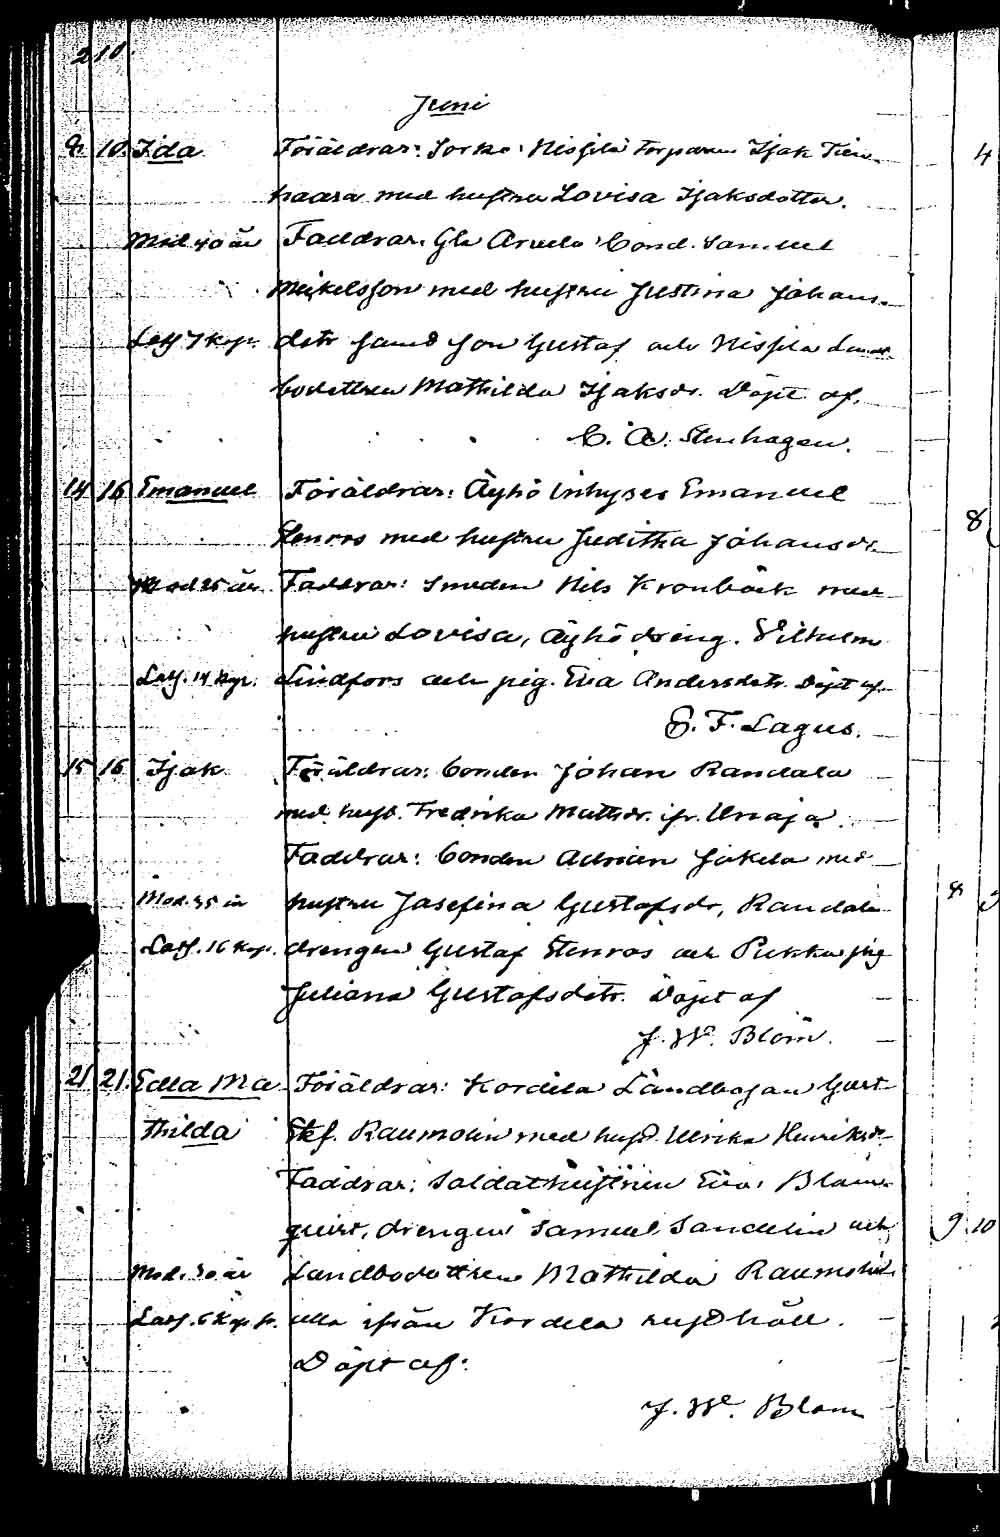 210.
Juni
8. 10. Ida Föräldrar: Sorko Nissilä Torparen Isak Tien-
haara med hustru Lovisa Isaksdotter.
Mod 40 år Faddrar: Gla Arvela Bond. Samuel
Mickelsson med hustru Justina Johans-
Lösf 7 kop. dotr samt son Gustaf och Nissila Land-
bodottren Mathilda Isaksdr. Döpt af.
C. A. Stenhagen.
14 16 Emanuel Föräldrar: Äyhö Inhyses Emanuel
Stenros med hustru Juditha Johansdr.
Mod 25 år Faddrar: Smeden Nils Kronbäck med
hustru Lovisa, Äyhö dreng. Vilhelm
Lösf. 14 kop. Lindfors och pig. Eva Andersdotr. Döpt af
E. F. Lagus.
15 16 Isak Föräldrar: bonden Johan Randala
med hust. Fredrika Mattsdr. ifr. Unaja.
Faddrar: bonden Adrian Jakela med
Mod. 35 år hustru Josefina Gustafsdr, Randala
Lösf. 16 kop. drengen Gustaf Stenros och Pukka pig
Juliana Gustafsdotr. Döpt af
J. W. Blom.
21 21. Edla Ma- Föräldrar: Kordela Landbosan Gust.
thilda Raumolin med hust. Ulrika Henriksdr
Faddrar: Soldathustrun Eva Blom-
qvist, drengen Samuel Sandelin och
Mod. 30 år Landbodottren Mathilda Raumolin
Lösf. 6 kop. alla ifrån Kordela rusthåll.
Döpt af:
J. W. Blom
4
8
8
9 10